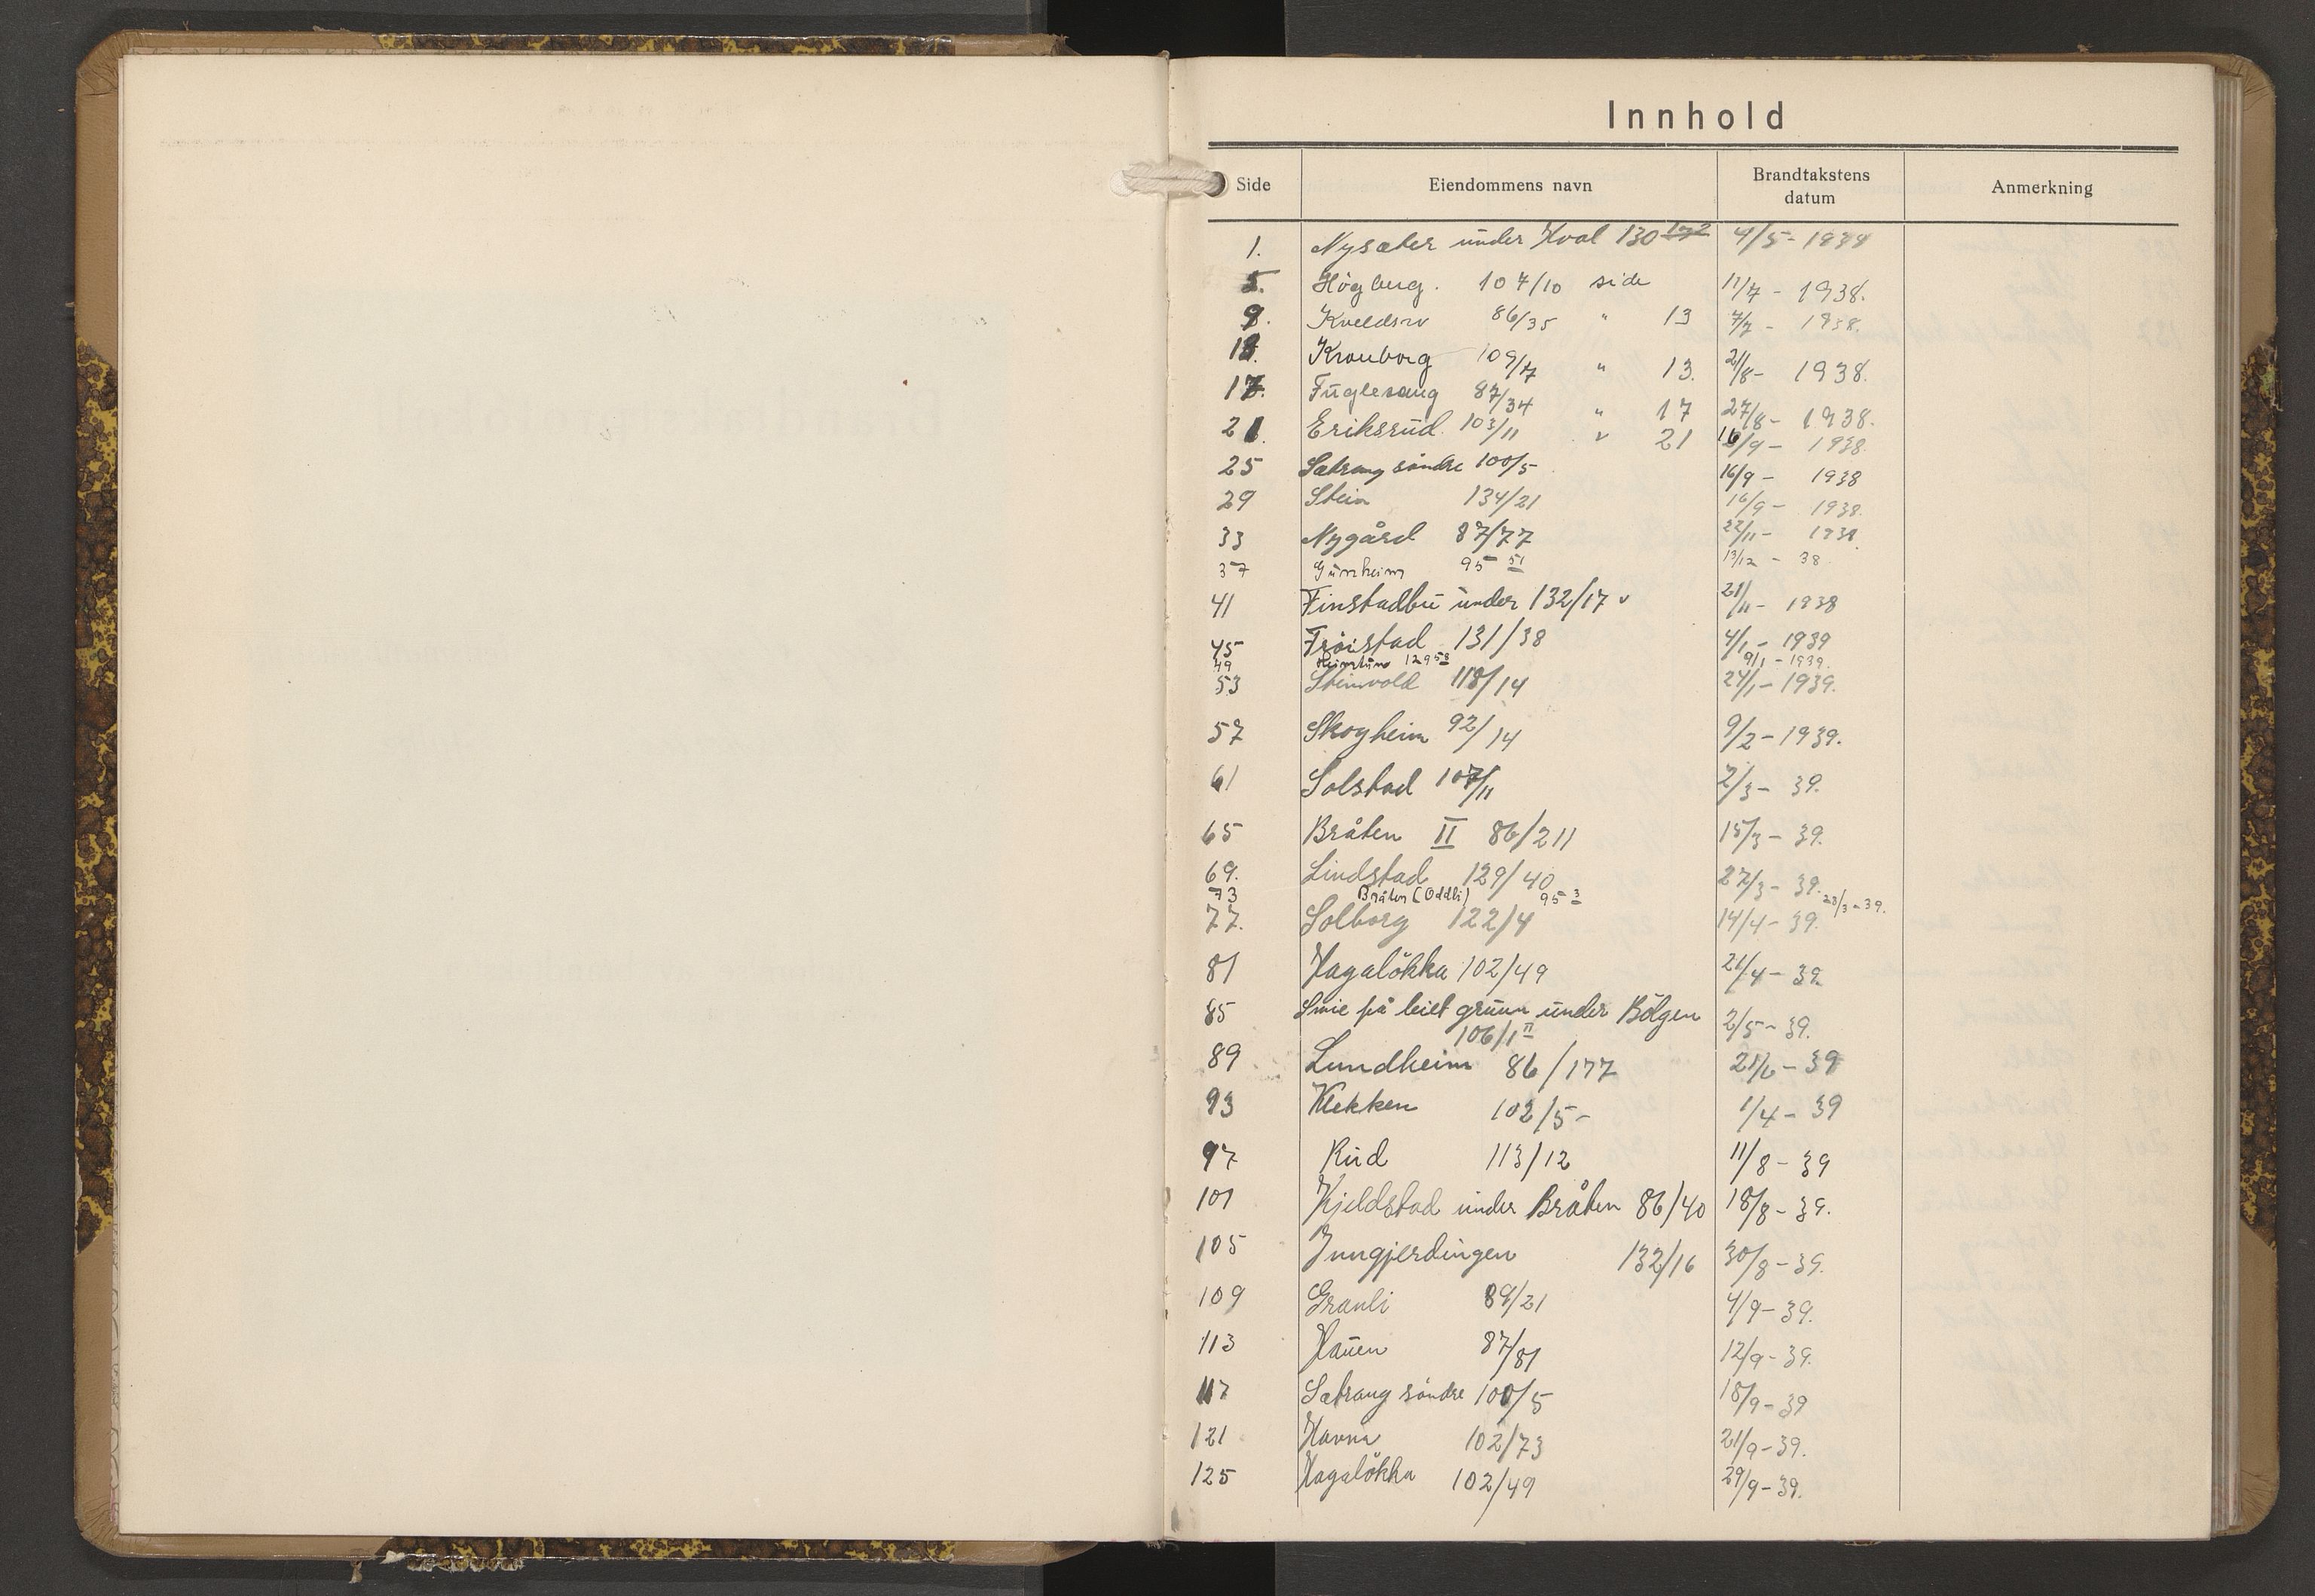 Innhold
Side Eiendommens navn Brandtakstens datum Anmerkning
1. Nysæter under Hval 130 4/5 - 1938
5. Högberg. 107/10 side 11/7 - 1938.
9. Kveldsro 86/35 " 13 7/7 - 1938.
13. Kronborg 109/7 " 13. 2/8 - 1938.
17. Fuglesang 87/34 " 17 27/8 - 1938.
21. Eriksrud. 103/11 " 21 16/9 - 1938
25 Sætrang söndre 100/5 16/9 - 1938
29 Stein 134/21 16/9 - 1938.
33 Nygård 87/77 22/11 - 1938.
37 Gunheim 95 51 13/12 - 38
41 Finstadbu under 132/17 v 21/11 - 1938
45 Fröistad 131/38 4/1 - 1939
49 Heimtun 129 58 9/1 - 1939.
53 Steinvold 118/14 24/1 - 1939.
57 Skogheim 92/14 9/2 - 1939.
61 Solstad 107/11 2/3 - 39.
65 Bråten II 86/211 15/3 - 39.
69. Lindstad 129/40 27/3 - 39.
73 Bråten (Oddli) 95 3 23/3 - 39.
77. Solborg 122/4 14/4 - 39.
81 Hagalökka 102/49 21/4 - 39.
85 Smie på leiet grunn under Bölgen 2/5 - 39.
106/1 II
89 Lundheim 86/177 21/6 - 39
93 Klekken 102/5 - 1/4 - 39
97 Rud 113/12 11/8 - 39
101 Kjeldstad under Bråten 86/40 18/8 - 39.
105 Jungjerdingen 132/16 30/8 - 39.
109 Granli 89/21 4/9 - 39.
113 Hauen 87/81 12/9 - 39.
117 Sætrang söndre 100/5 18/9 - 39
121 Havna 102/73 21/9 - 39.
125 Hagalökka 102/49 29/9 - 39.